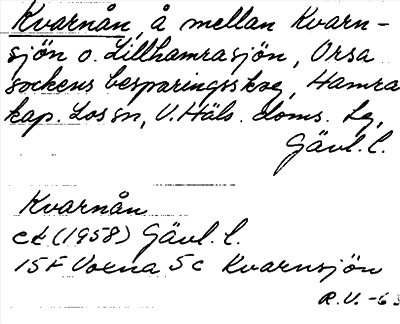 Kvarnån, å mellan Kvarn-
sjön o. Lillhamrasjön, Orsa
sockens besparingsskog, Hamra
kap. Los sn, V. Häls. doms. lg,
Gävl. l.
Kvarnån
ek (1958) Gävl. l.
15F Voxna 5c Kvarnsjön
R.V. -63